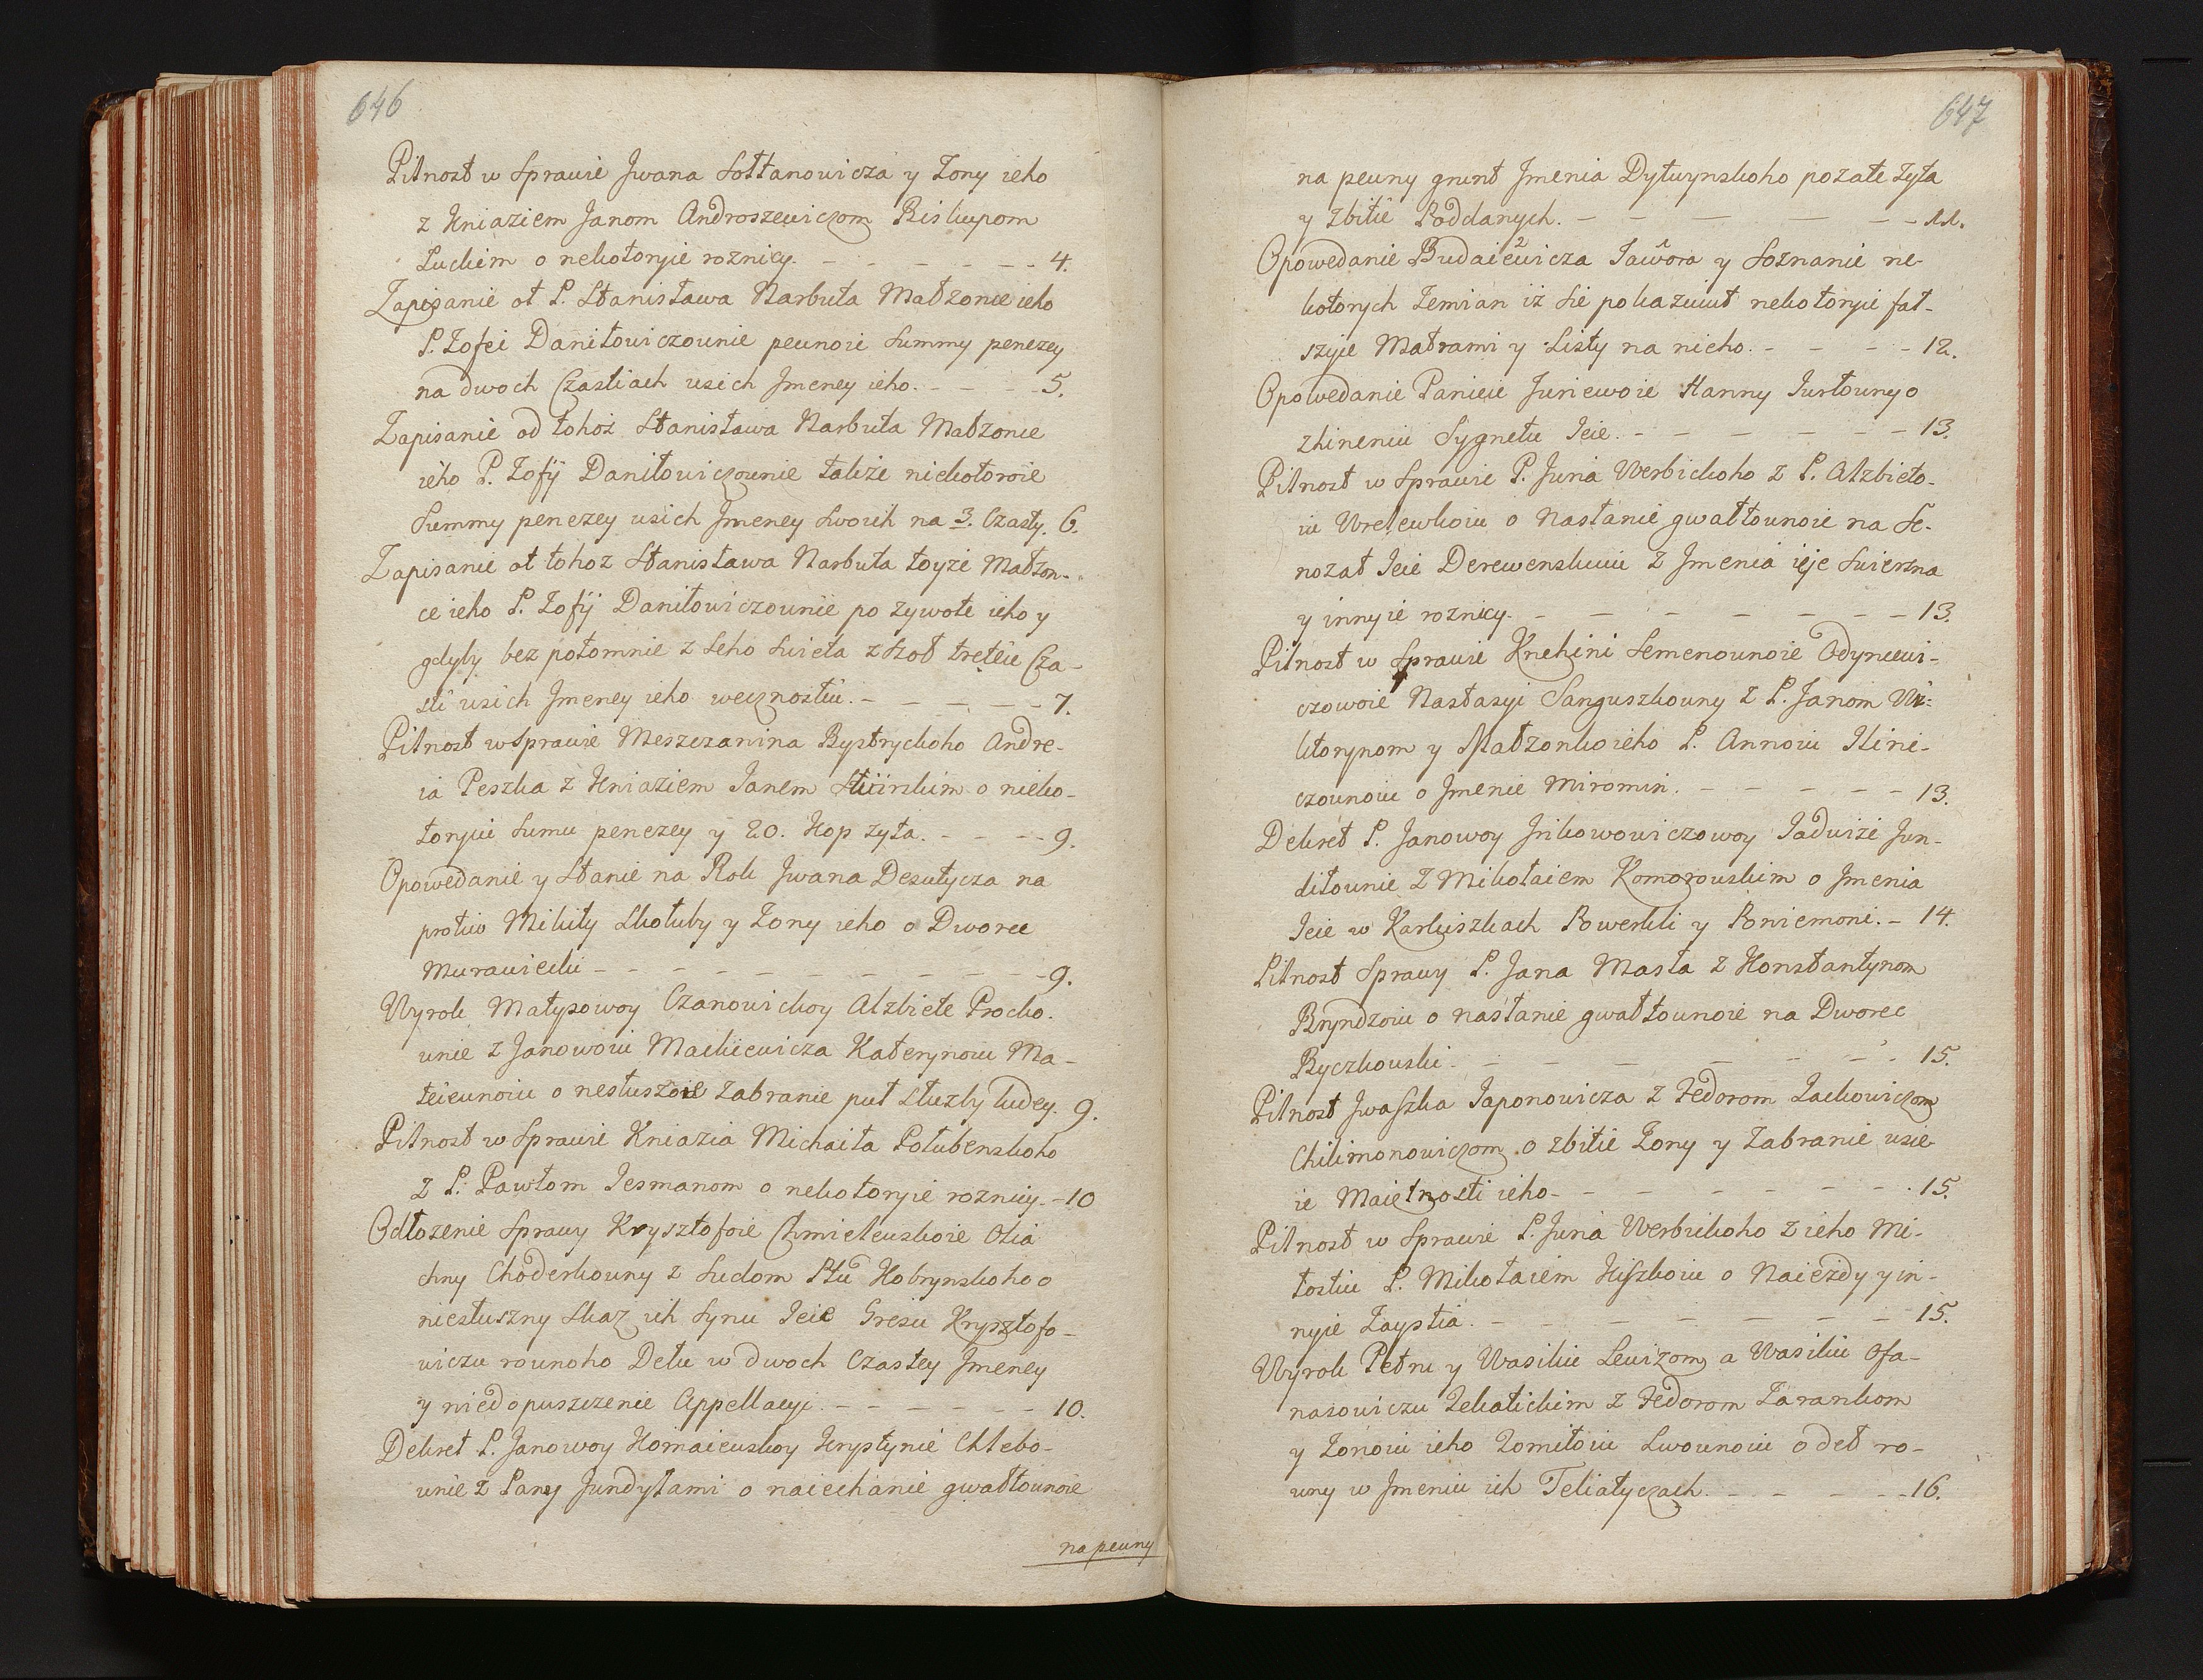 646
Pilnost w Sprawie Jwana Sołtanowicza y Zony ieho
z Kniaziem Janom Androszewiczom Biskupom
Luckim o nekotoryie roznicy. - - - - - - 4.
Zapisanie ot P. Stanisława Narbuta Małzonce ieho
P. Zofei Daniłowiczounie peunoie Summy penezey
na dwoch Czastiach usich Jmeney ieho. - - - 5.
Zapisanie od tohoż Stanisława Narbuta Małzonce
ieho P. Zofij Daniłowiczounie także niekotoroie
Summy penezey usich Jmeney Swoich na 3. Czasty. 6.
Zapisanie ot tohoz Stanisława Narbuta toyże Małzon-
ce ieho P. Zofij Daniłowiczounie po zywote ieho y
gdyby bez potomnie z Seho Swieta zszoł treteiu Cza-
sti usich Jmeney ieho wecznostiu. - - - - - 7.
Pilnost w Sprawie Meszczanina Bystryckoho Andre-
ia Peszka z Kniaziem Janem o nieko-
toryiu Sumu penezey y 20. Kop zyta. - - - - 9.
Opowedanie y Stanie na Rok Jwana Deszutycza na
protiw Mikity Skołuby y Zony ieho o Dworec
Murawiecki - - - - - - - - - - - 9.
Wyrok Matysowoy Czanowickoy Alzbiete Procko.
unie z Janowoiu Mackiewicza Katerynoiu Ma-
teieunoiu o nesłusznoie Zabranie put Służby ludey. 9.
Pilnost w Sprawie Kniazia Michaiła Połubenskoho
z P. Pawłom Jesmanom o nekotoryie roznicy. - 10
Odłozenie Sprawy Krysztofoie Chmieleuskoie Olia
chny Choderkouny z Sudom Ptu Kobrynskoho o
niesłuszny Skaz ich Synu Jeie Gresiu Krysztofo-
wiczu rounoho Dełu w dwoch Czastey Jmeney
y niedopuszczenie Appellacyi. - - - - - - 10.
Dekret P. Janowoy Homaieuskoy Krystynie Chlebo-
unie z Pany Jundyłami o naiechanie gwałtounoie
na peuny
647
na peuny grunt Jmenia Dytwynskoho pozate zyta
y zbitie Poddanych. - - - - - 11.
Opowedanie Budaiewicza Jawora y Soznanie ne-
kotorych Zemian iż Sie pokazuiut nekotoryie fał-
szyie Matrami y Listy na nieho. - - - - 12.
Opowedanie Panieie Juriewoie Hanny Jurłouny o
zhineniu Sygnetu Jeie. - - - - - - 13.
Pilnost w Sprawie P. Juria Werbickoho z P. Alzbieto-
iu o Nastanie gwałtounoie na Se-
nozat Jeie Derewenskuiu z Jmenia ieje Swierzna
y innyie roznicy. - - - - - - - 13.
Pilnost w Sprawie Knehini Semenounoie Odyncewi-
czowoie Nastasyi Sanguszkouny z P. Janom Wi-
ktorynom y Małzonkoieho P. Annoiu Ilini-
czounoiu o Jmenie Miromin. - - - - - 13.
Dekret P. Janowoy Jnikowowiczowoy Jadwize Jun-
diłounie z Mikołaiem Komorouskim o Jmenia
Jeie w Karkiszkach Powerkli y Poniemoni. - 14.
Pilnost Sprawy P. Jana Masła z Konstantynom
Bryndzoiu o nastanie gwałtounoie na Dworec
Byczkouski. - - - - - - - 15.
Pilnost Jwaszka Japonowicza z Fedorom Lackowiczom
Chilimonowiczom o zbitie Zony y Zabranie usie-
ie Maietnosti ieho - - - - - - - 15.
Pilnost w Sprawie P. Juria Werbickoho z ieho Mi-
łostiu P. Mikołaiem Kiszkoiu o Naiezdy y in-
nyie Zaystia. - - - - - - - 15.
Wyrok Petru y Wasiliu Lewizom, a Wasiliu Ofa-
nasowiczu Tekatickim z Fedorom Zarankom
y Zonoiu ieho Tomiłoiu Lwounoiu o deł ro-
uny w Jmeniu ich Teliatyczach. - - - - - 16.